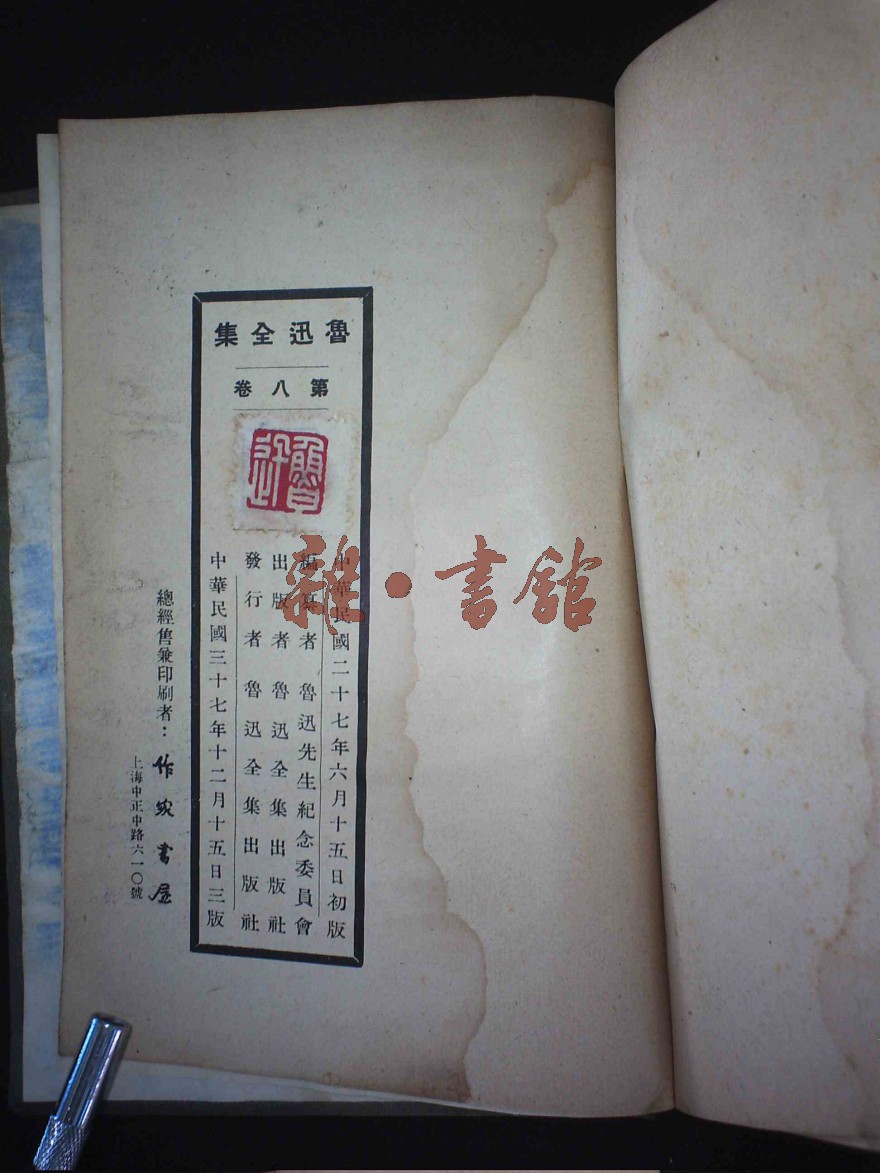 魯迅全集
第八卷
魯迅
中華民國二十七年六月十五日初版
編纂者 魯迅先生紀念委員會
出版者 魯迅全集出版社
發行者 魯迅全集出版社
中華民國三十七年十二月十五日三版
總經售兼印刷者：作家書屋
上海中正中路六一〇號
雜·書館